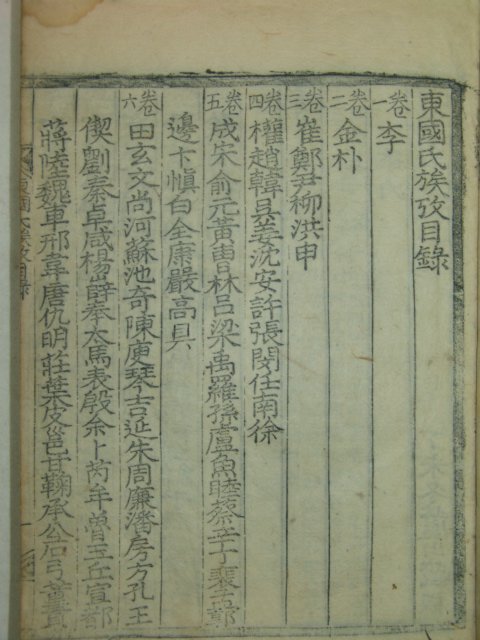 東國氏族攷目錄
卷一 李
卷二 金朴
卷三 崔鄭尹柳洪申
卷四 權趙韓吳姜沈安許張閔任南徐
卷五 成宋俞元黃曺林呂梁禹羅孫盧魚睦蔡辛丁裵孟郭
邊卞愼白全康嚴高具
卷六 田玄文尚河蘇池奇陳庾琴吉延朱周廉潘房方孔王
偰劉秦卓咸楊薛奉太馬表殷余卜芮牟魯玉丘宣都
蔣陸魏車邢韋唐仇明莊葉皮邕甘鞠承公石弓